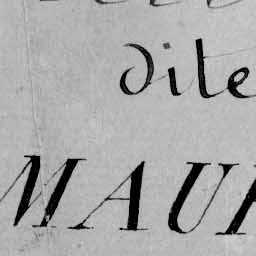 dite
MAUR